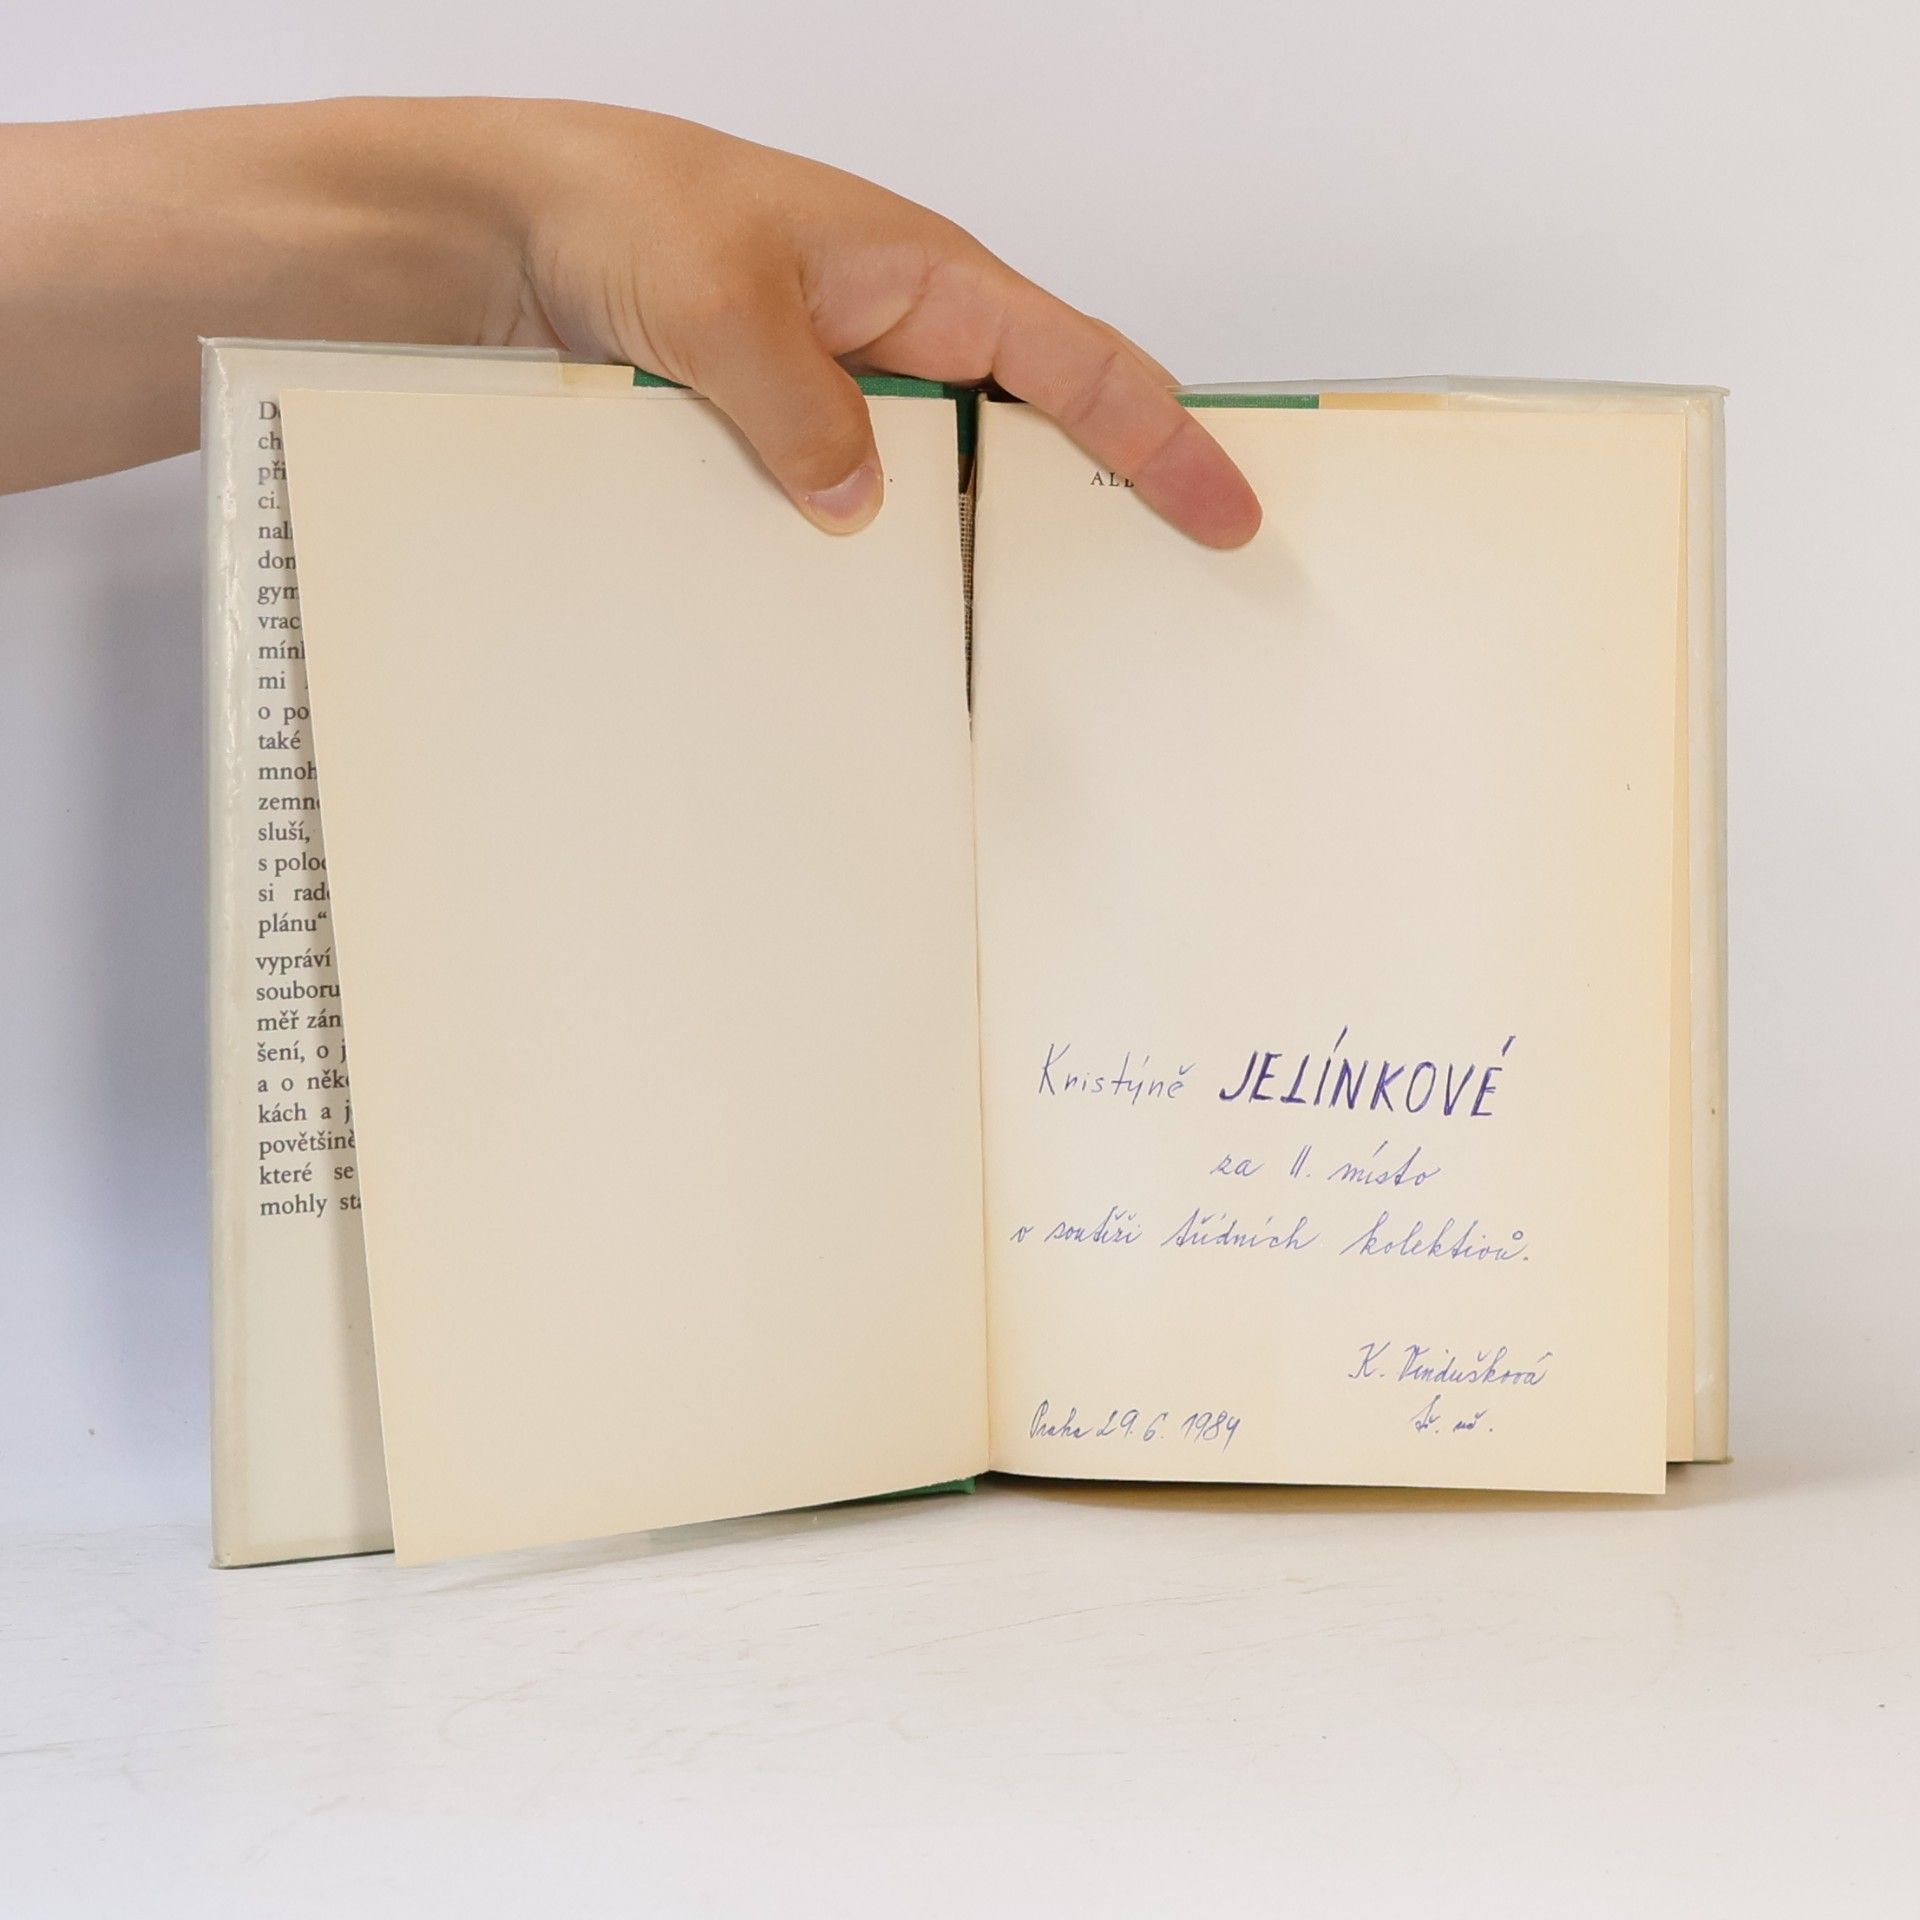 ch
při
ci.
vrac
mi
o po
také
mnoh
sluší,
si
plánu“
vypráví
souboru
měř zán
šení, o j
a o někc
kách a j
povětšině
které se
mohly sta
Kristýně JELÍNKOVÉ
za II. místo
v soutěži třídních kolektivů.
K. Vindušková
tř. uč.
Praha 29. 6. 1984